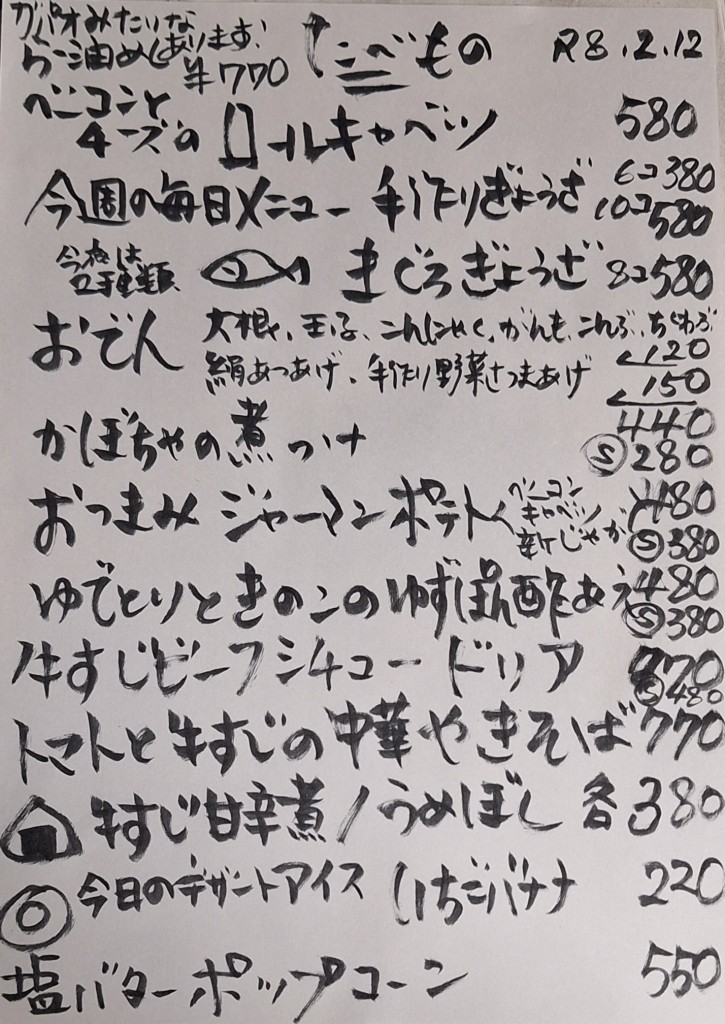 ガパオみたいな
らー油めしあります！
¥770
たべもの R8.2.12
ベーコンと
チーズの ロールキャベツ 580
今週の毎日メニュー 手作りぎょうざ 6コ380
10コ580
今夜は
2種類 まぐろぎょうざ 8コ580
おでん 大根、玉子、こんにゃく、がんも、こんぶ、ちくわぶ
120
絹あつあげ、手作り野菜さつまあげ
150
かぼちゃの煮つけ 440
S 280
おつまみ ジャーマンポテト ベーコン
キャベツ
新じゃが 480
S 380
ゆでとりときのこのゆずぽん酢あえ 480
S 380
牛すじビーフシチュードリア 770
S 480
トマトと牛すじの中華やきそば 770
牛すじ甘辛煮/うめぼし 各380
今日のデザートアイス いちごバナナ 220
塩バターポップコーン 550